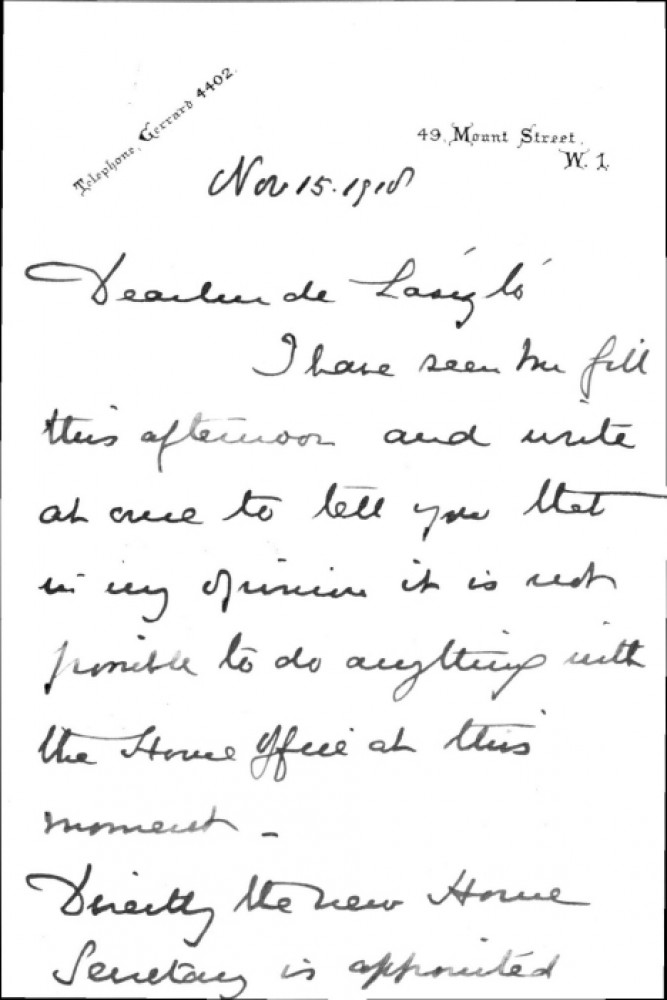 Telephone, Gerrard 4402.
49, Mount Street,
W. 1.
Nov 15. 1918
Dear de László
I have seen Mr Gill
this afternoon and write
at once to tell you that
in my opinion it is not
possible to do anything with
the Home Office at this
moment -
Directly the new Home
Secretary is appointed